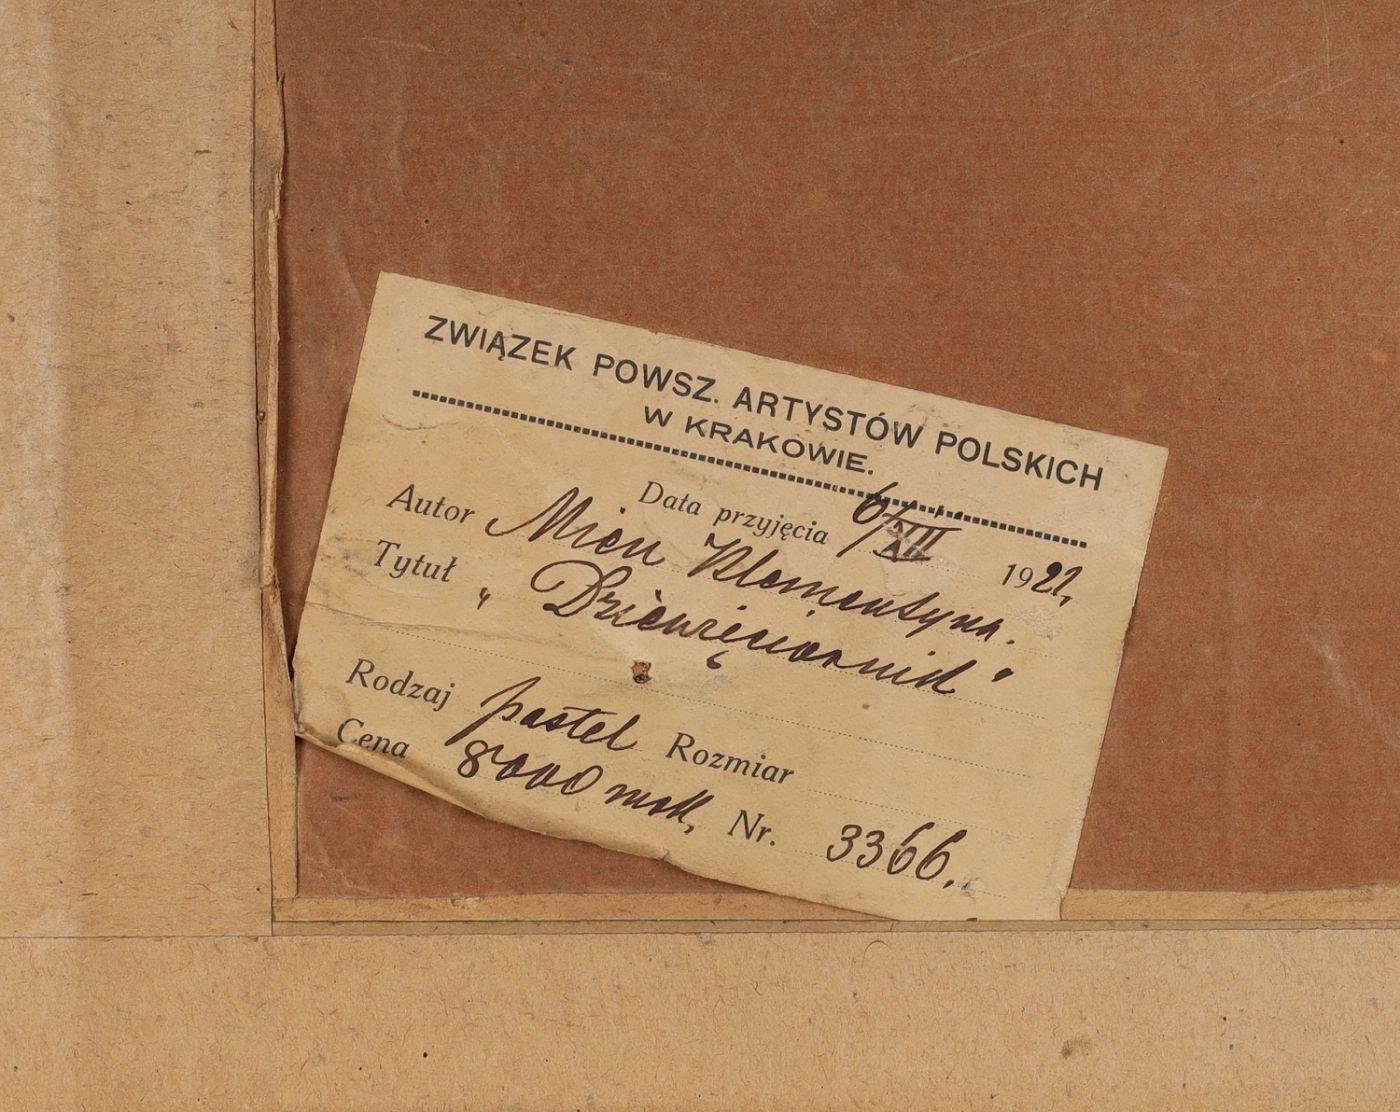 ZWIĄZEK POWSZ. ARTYSTÓW POLSKICH
W KRAKOWIE.
Data przyjęcia 6/XII 1921,
Autor Mien Klementyna.
Tytuł „Dziewięciornik"
Rodzaj pastel Rozmiar
Cena 8000 mk, Nr. 3366.